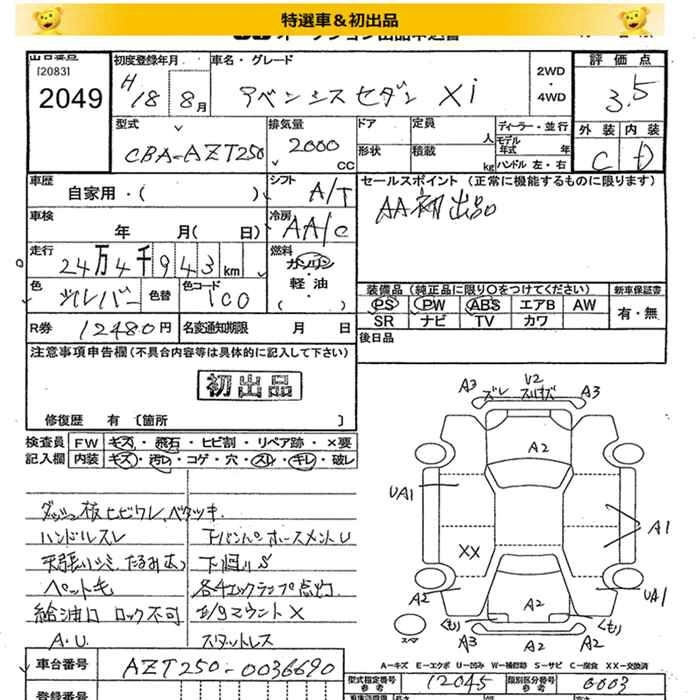 特選車＆初出品
出品番号
[2083]
2049
初度登録年月
H18 8月
車名・グレード
アベンシスセダン Xi
2WD
・
4WD
評価点
3.5
外装 内装
C D
型式
CBA-AZT250
排気量
2000 CC
ドア
定員 人
形状
積載 kg
ディーラー・並行
モデル年式 年
ハンドル 左・右
車歴
自家用・( )
シフト
A/T
セールスポイント (正常に機能するものに限ります)
AA初出品
車検
年 月( 日)
冷房
AA/C
走行
24万4千943km
燃料
ガソリン
軽・油
( )
色
シルバー
色替
色コード
1C0
装備品 (純正品に限り○をつけてください)
PS PW ABS エアB AW
SR ナビ TV カワ
新車保証書
有・無
R券 12480円
名変通知期限 月 日
後日品
注意事項申告欄(不具合内容等は具体的に記入して下さい)
初出品
修復歴 有 〔箇所 〕
検査員記入欄
FW キズ・飛石・ヒビ割・リペア跡・×要
内装 キズ・汚レ・コゲ・穴・スレ・キレ・破レ
ダッシュ板ヒビワレ、ベタツキ
ハンドルスレ
下バンパ ホースメントU
天張りシミ、たるみあり
下廻りS
ペット毛
各チェックランプ点灯
給油口 ロック不可
E/gマウント×
A.U.
スタットレス
A3
ズレ
U2
スリキズ
A3
A2
UA1
A1
XX
A2
UA1
A2
くもり
くもり
A3
A2
A2
スペア
A-キズ E-エクボ U-凹み W-補修跡 S-サビ C-腐食 XX-交換済
車台番号
AZT250-0036690
登録番号
型式指定番号
参考
12045
類別区分番号
参考
0003